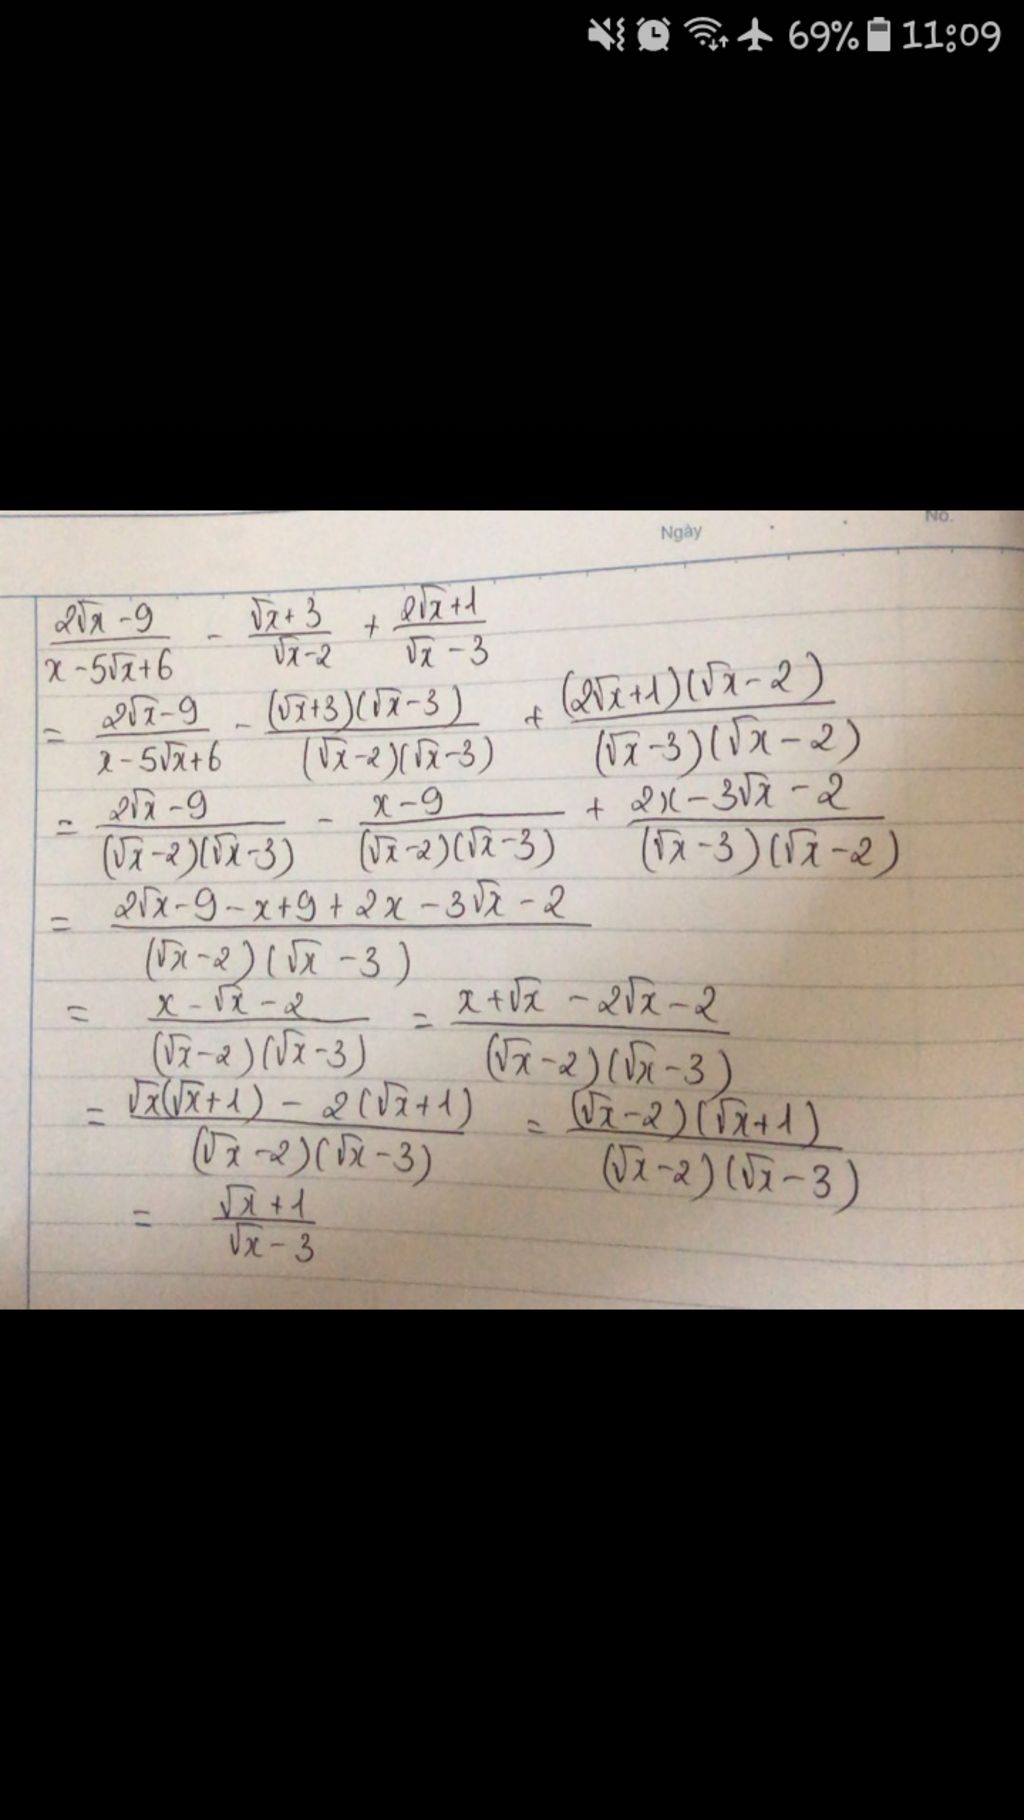 69% 11:09
Ngày No.
(2√x - 9)/(x - 5√x + 6) - (√x + 3)/(√x - 2) + (2√x + 1)/(√x - 3)
= (2√x - 9)/(x - 5√x + 6) - ((√x + 3)(√x - 3))/((√x - 2)(√x - 3)) + ((2√x + 1)(√x - 2))/((√x - 3)(√x - 2))
= (2√x - 9)/((√x - 2)(√x - 3)) - (x - 9)/((√x - 2)(√x - 3)) + (2x - 3√x - 2)/((√x - 3)(√x - 2))
= (2√x - 9 - x + 9 + 2x - 3√x - 2)/((√x - 2)(√x - 3))
= (x - √x - 2)/((√x - 2)(√x - 3)) = (x + √x - 2√x - 2)/((√x - 2)(√x - 3))
= (√x(√x + 1) - 2(√x + 1))/((√x - 2)(√x - 3)) = ((√x - 2)(√x + 1))/((√x - 2)(√x - 3))
= (√x + 1)/(√x - 3)